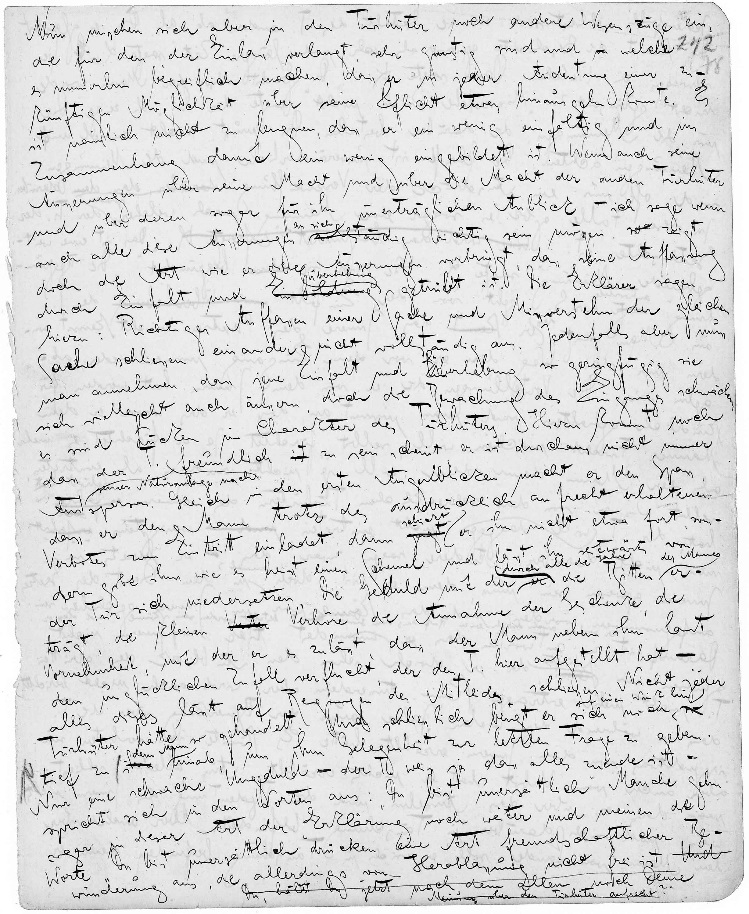 Nun mischen sich aber in den Türhüter noch andere Wesenszüge ein,
die für den der Einlass verlangt sehr günstig sind und welche
242
78
es immerhin begreiflich machen, dass er in jener Andeutung einer zu-
künftigen Möglichkeit über seine Pflicht etwas hinausgehn konnte. Es
ist nämlich nicht zu leugnen, dass er ein wenig einfältig und im
Zusammenhang damit ein wenig eingebildet ist. Wenn auch seine
Äusserungen über seine Macht und über die Macht der andern Türhüter
und über deren sogar für ihn unerträglichen Anblick – ich sage wenn
auch alle diese Äusserungen an sich richtig sein mögen, so zeigt
doch die Art wie er diese Äusserungen vorbringt, dass seine Auffassung
durch Einfalt und Überhebung getrübt ist. Die Erklärer sagen
hiezu: Richtiges Auffassen einer Sache und Missverstehn der gleichen
Sache schliessen einander nicht vollständig aus. Jedenfalls aber muss
man annehmen, dass jene Einfalt und Überhebung, so geringfügig sie
sich vielleicht auch äussern, doch die Bewachung des Eingangs schwächen,
es sind Lücken im Charakter des Türhüters. Hiezu kommt noch
dass der T. seiner Naturanlage nach freundlich zu sein scheint, er ist durchaus nicht immer
Amtsperson. Gleich in den ersten Augenblicken macht er den Spass,
dass er den Mann trotz des ausdrücklich aufrecht erhaltenen
Verbotes zum Eintritt einladet, dann schickt er ihn nicht etwa fort son-
dern gibt ihm wie es heisst einen Schemel und lässt ihn seitwärts von
der Tür sich niedersetzen. Die Geduld mit der er durch alle die Jahre die Bitten des Mannes er-
trägt, die kleinen Verhöre, die Annahme der Geschenke, die
Vornehmheit, mit der er es zulässt, dass der Mann neben ihm laut
den unglücklichen Zufall verflucht der den T. hier aufgestellt hat –
alles dieses lässt auf Regungen des Mitleids schliessen. Nicht jeder
Türhüter hätte so gehandelt. Und schliesslich beugt er sich noch auf einen Wink hin
tief zu dem Mann hinab, um ihm Gelegenheit zur letzten Frage zu geben.
Nur eine schwache Ungeduld – der T. weiss ja dass alles zuende ist –
spricht sich in den Worten aus: Du bist unersättlich. Manche gehn
sogar in dieser Art der Erklärung noch weiter und meinen, die
Worte Du bist unersättlich drücken eine Art freundschaftlicher Be-
wunderung aus, die allerdings von Herablassung nicht frei ist. Und